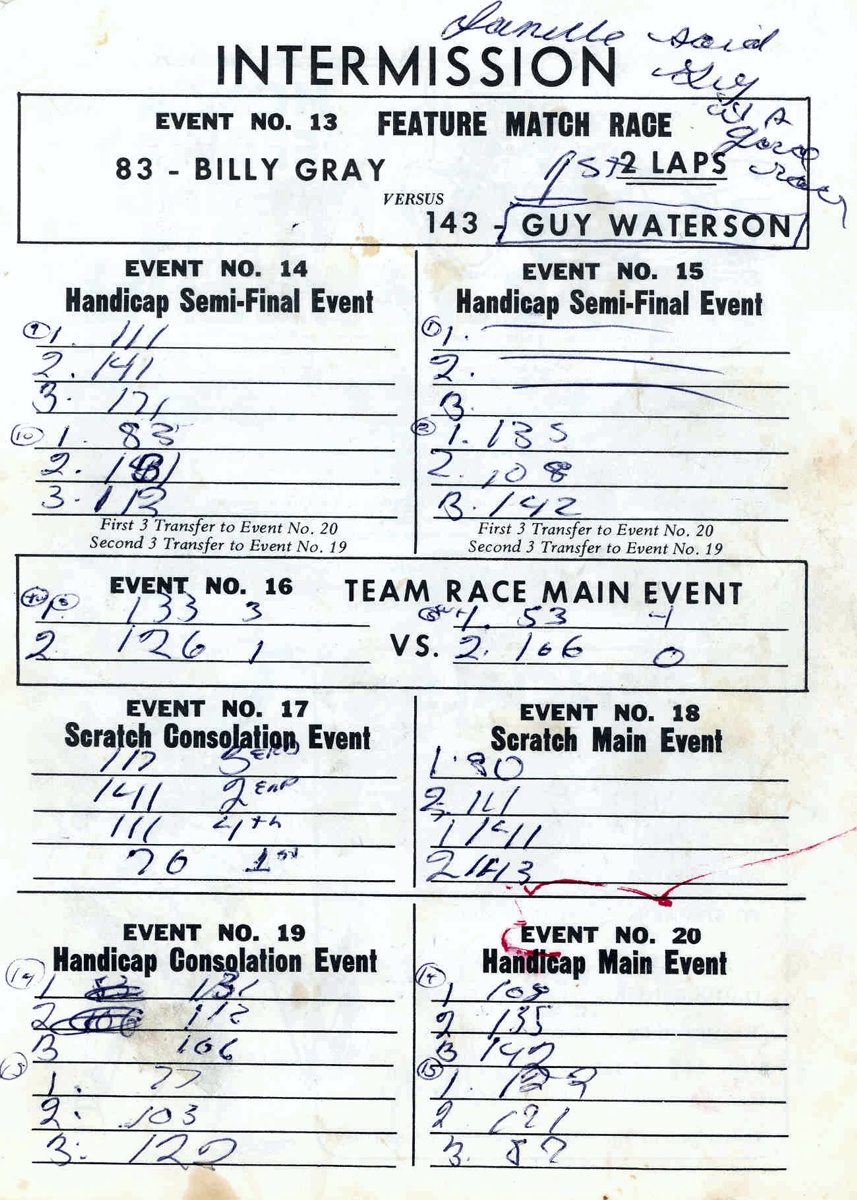 Janelle said
INTERMISSION
Guy
is a
good
EVENT NO. 13 FEATURE MATCH RACE
83 - BILLY GRAY
1st 2 LAPS
VERSUS
143 - GUY WATERSON
EVENT NO. 14
Handicap Semi-Final Event
(9) 1. 111
2. 141
3. 171
(10) 1. 83
2.
3. 112
First 3 Transfer to Event No. 20
Second 3 Transfer to Event No. 19
EVENT NO. 15
Handicap Semi-Final Event
1.
2.
3.
1. 135
2. 108
3. 142
First 3 Transfer to Event No. 20
Second 3 Transfer to Event No. 19
EVENT NO. 16 TEAM RACE MAIN EVENT
1. 133 3
2. 126 1
VS.
1. 53
2. 166 0
EVENT NO. 17
Scratch Consolation Event
117
141 2
111 4th
76 1st
EVENT NO. 18
Scratch Main Event
1. 80
2. 111
1 141
2 143
EVENT NO. 19
Handicap Consolation Event
(14) 1 131
2 112
3 166
1. 77
2. 103
3. 122
EVENT NO. 20
Handicap Main Event
(14)
1 108
2 135
3 142
(15)
1.
2
3.